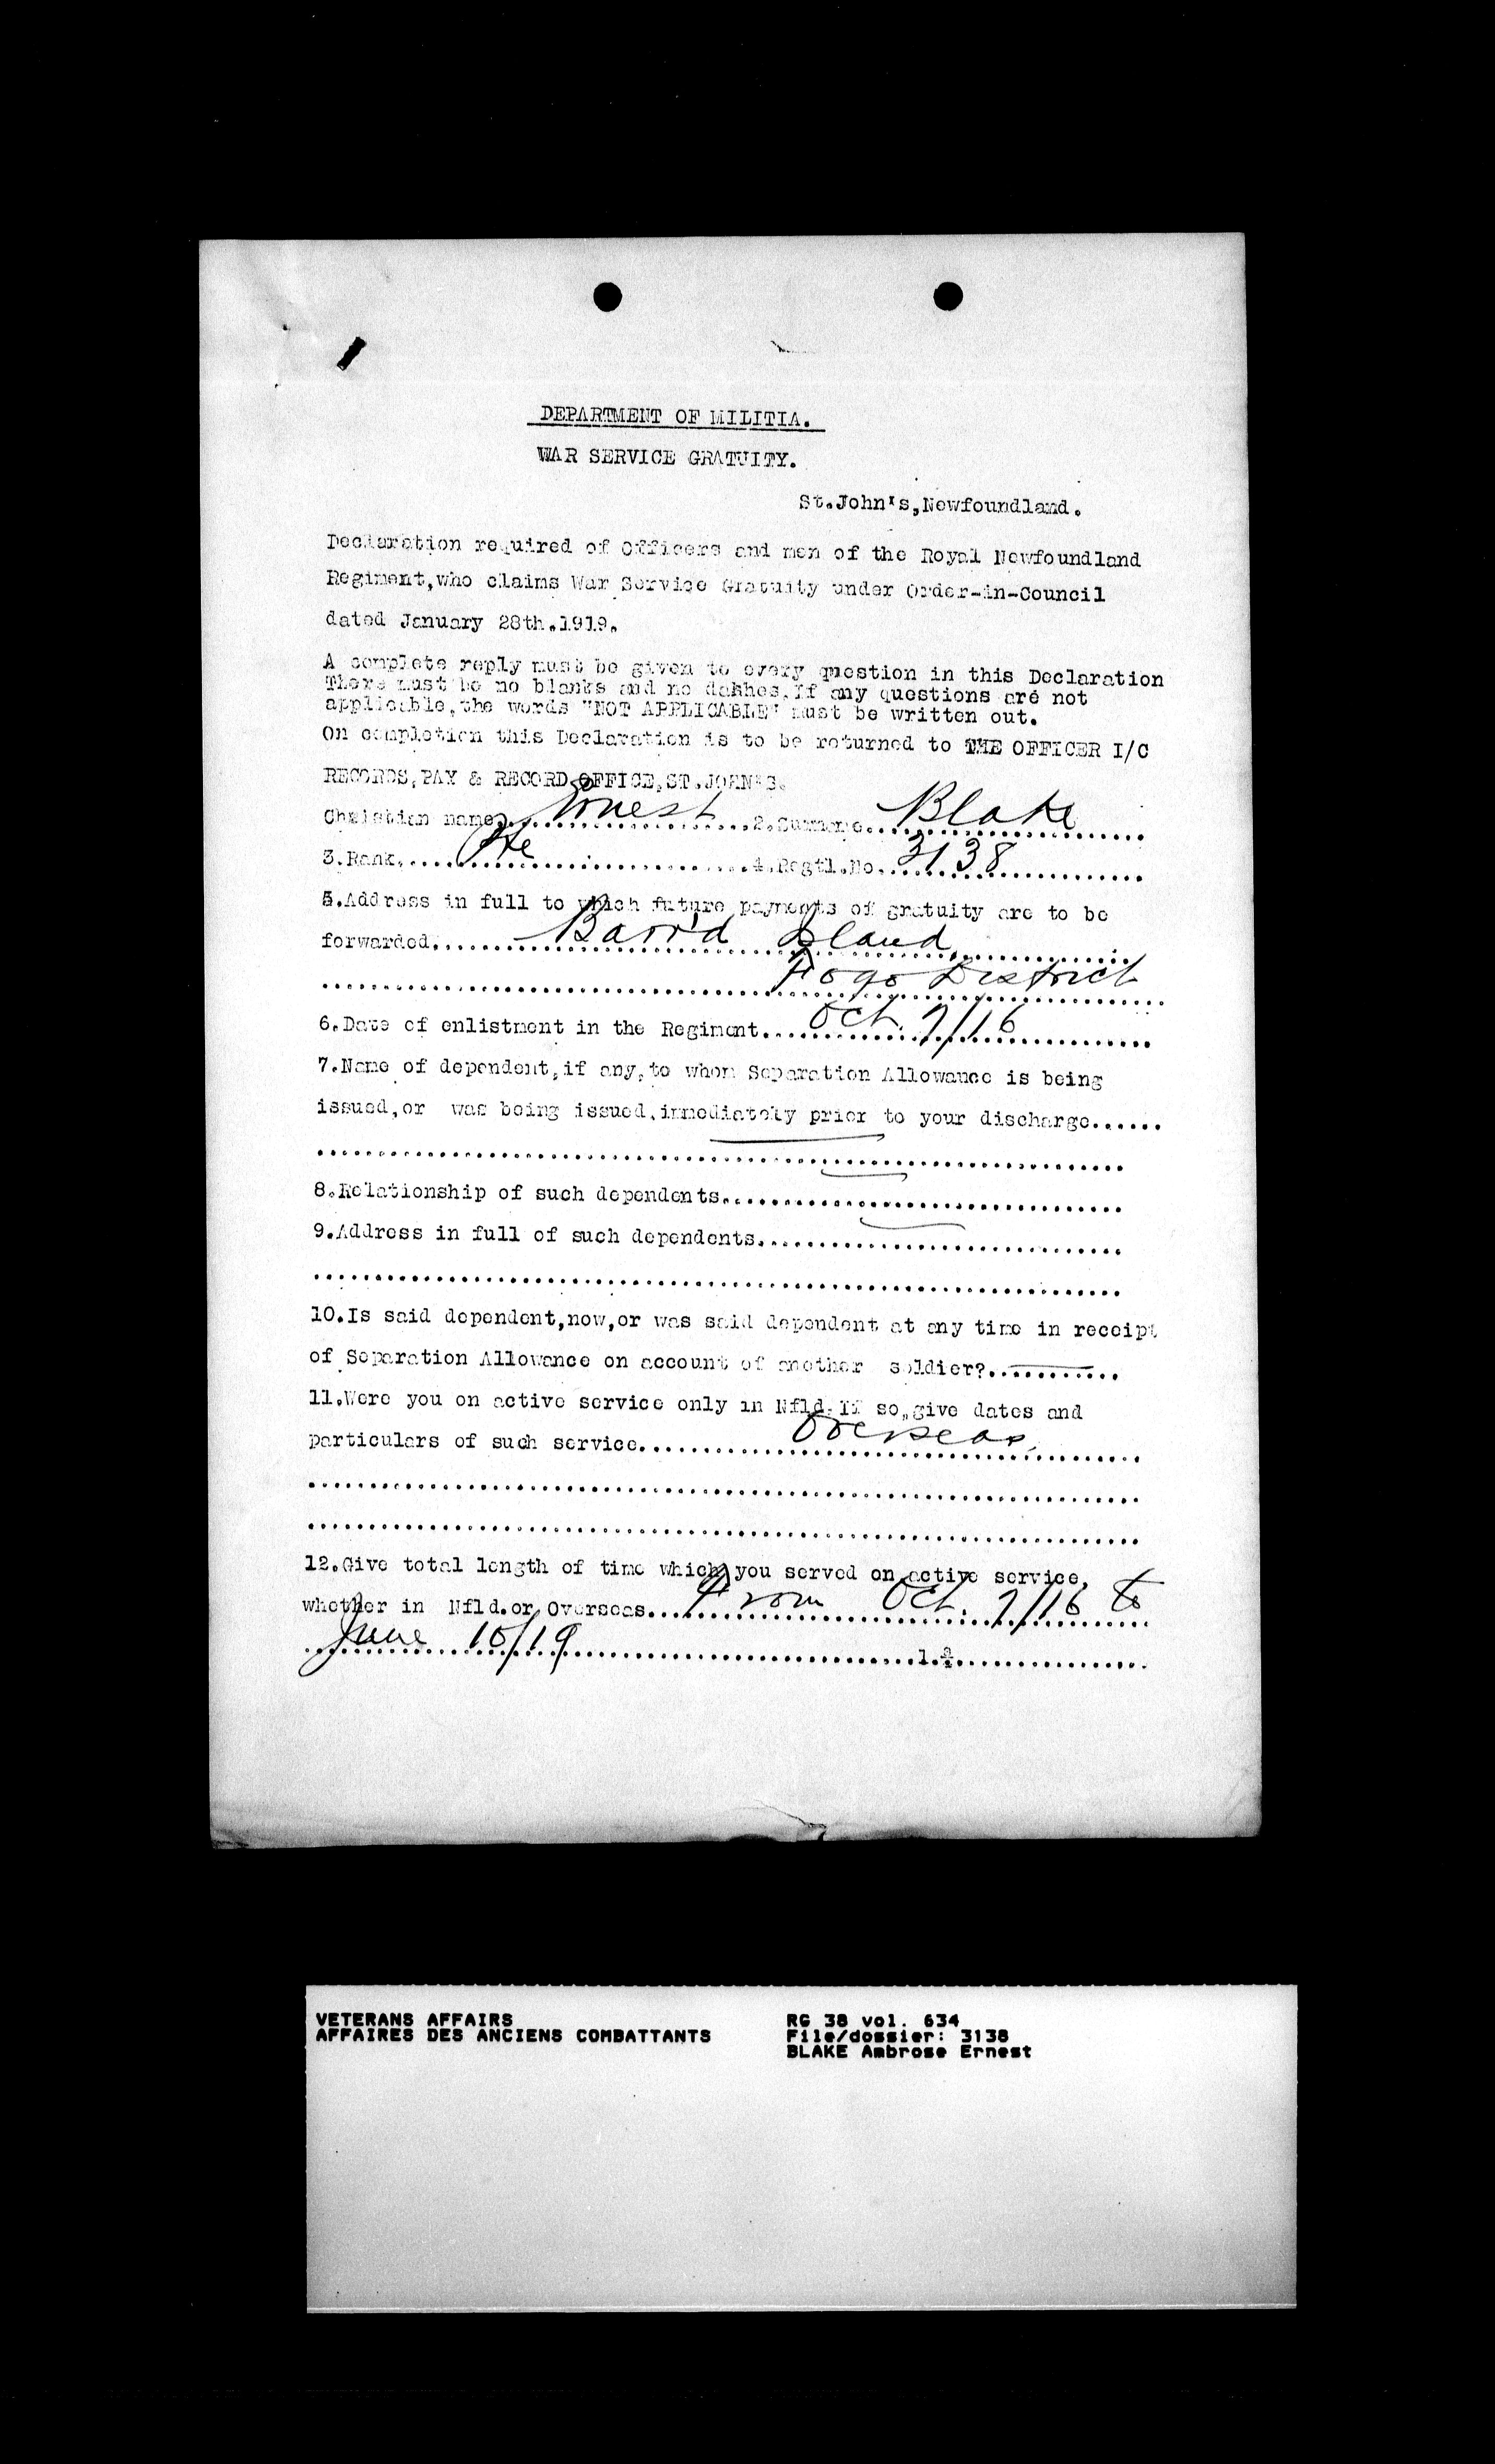 DEPARTMENT OF MILITIA.
WAR SERVICE GRATUITY.
St.John's,Newfoundland.
Declaration required of Officers and men of the Royal Newfoundland
Regiment,who claims War Service Gratuity under Order-in-Council
dated January 28th.1919.
A complete reply must be given to every question in this Declaration
There must be no blanks and no dashes.If any questions are not
applicable,the words "NOT APPLICABLE" must be written out.
On completion this Declaration is to be returned to THE OFFICER I/C
RECORDS,PAY & RECORD OFFICE,ST.JOHN'S.
Christian name...Ernest...2.Surname...Blake...
3.Rank...Pte...4.Regtl.No...3138...
5.Address in full to which future payments of gratuity are to be
forwarded...Barr'd Island...
...Fogo District
6.Date of enlistment in the Regiment...Oct. 7/16...
7.Name of dependent,if any,to whom Separation Allowance is being
issued,or was being issued,immediately prior to your discharge......
8.Relationship of such dependents...
9.Address in full of such dependents...
10.Is said dependent,now,or was said dependent at any time in receipt
of Separation Allowance on account of another soldier?...
11.Were you on active service only in Nfld.If so,give dates and
particulars of such service...Overseas...
12.Give total length of time which you served on active service,
whether in Nfld.or Overseas...From Oct. 7/16 to
June 10/19...
VETERANS AFFAIRS
AFFAIRES DES ANCIENS COMBATTANTS
RG 38 vol. 634
File/dossier: 3138
BLAKE Ambrose Ernest